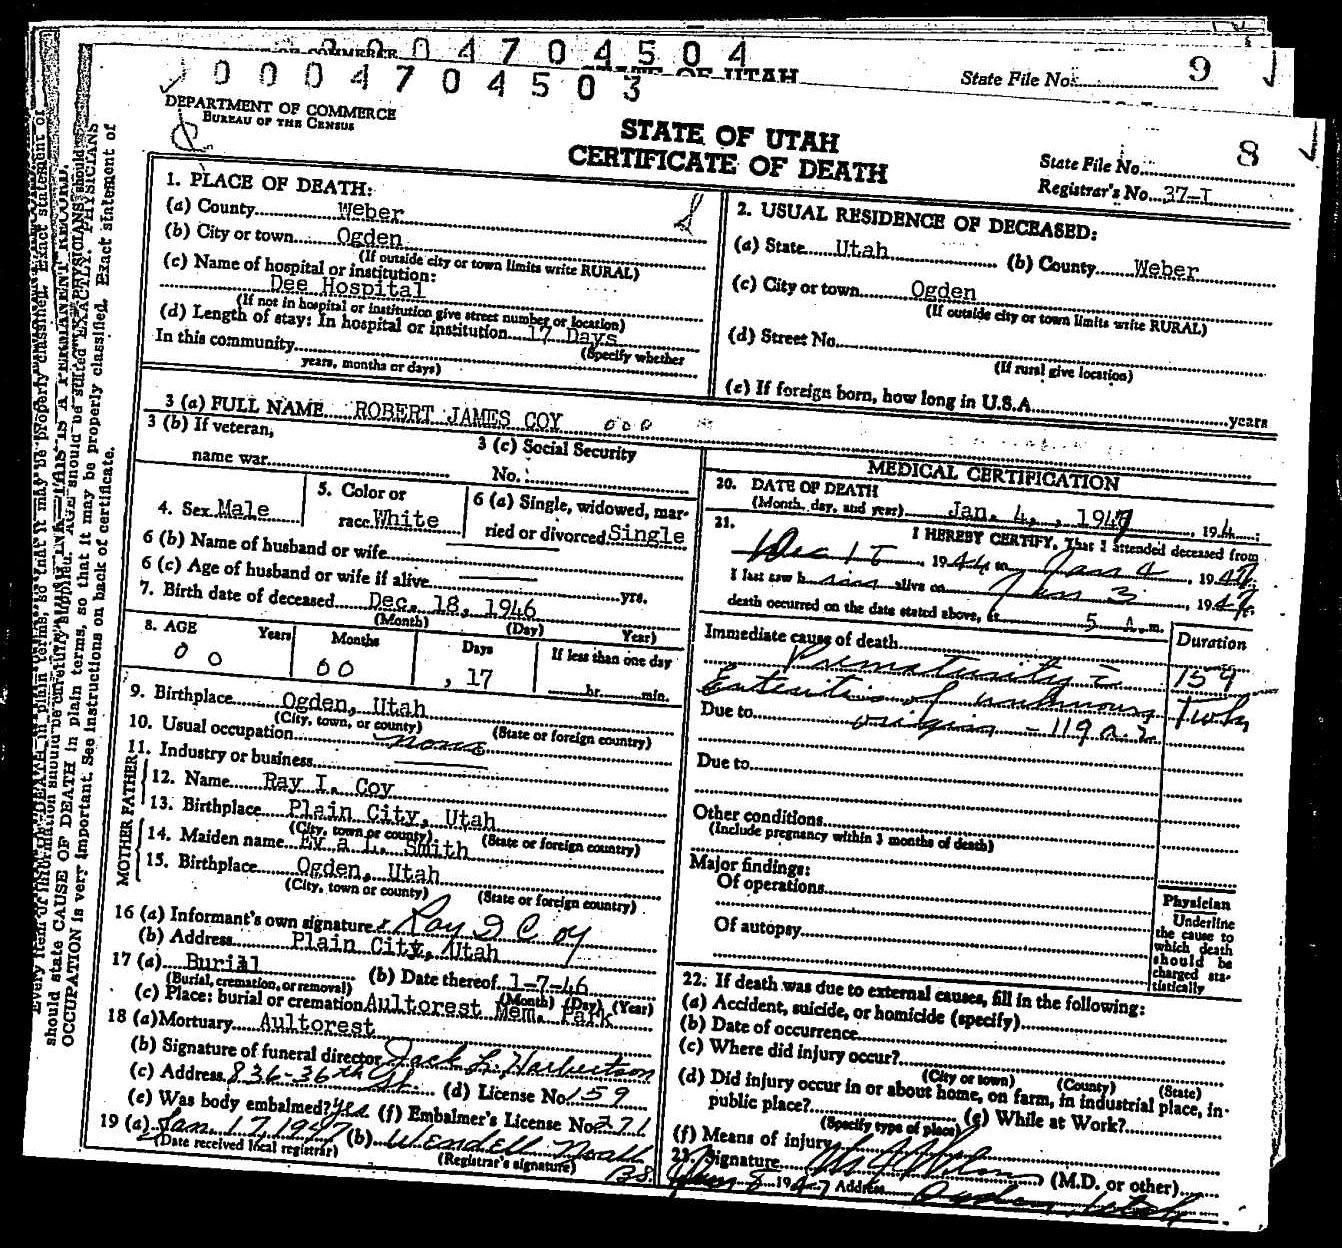 0004704504
OF COMMERCE
STATE OF UTAH
State File No. 9
0004704503
DEPARTMENT OF COMMERCE
BUREAU OF THE CENSUS
STATE OF UTAH
CERTIFICATE OF DEATH
State File No. 8
Registrar's No. 37-I
1. PLACE OF DEATH:
(a) County Weber
(b) City or town Ogden
(If outside city or town limits write RURAL)
(c) Name of hospital or institution:
Dee Hospital
(If not in hospital or institution give street number or location)
(d) Length of stay: In hospital or institution 17 Days
(Specify whether
In this community
years, months or days)
2. USUAL RESIDENCE OF DECEASED:
(a) State Utah (b) County Weber
(c) City or town Ogden
(If outside city or town limits write RURAL)
(d) Street No.
(If rural give location)
(e) If foreign born, how long in U.S.A. years
3 (a) FULL NAME ROBERT JAMES COY 000
3 (b) If veteran,
name war
3 (c) Social Security
No.
4. Sex Male
5. Color or
race White
6 (a) Single, widowed, mar-
ried or divorced Single
6 (b) Name of husband or wife
6 (c) Age of husband or wife if alive yrs.
7. Birth date of deceased Dec. 18, 1946
(Month) (Day) Year)
8. AGE Years Months Days If less than one day
00 00 , 17 hr. min.
9. Birthplace Ogden, Utah
(City, town, or county) (State or foreign country)
10. Usual occupation none
11. Industry or business
FATHER
12. Name Ray I. Coy
13. Birthplace Plain City, Utah
(City, town or county) (State or foreign country)
MOTHER
14. Maiden name Ev a L. Smith
15. Birthplace Ogden, Utah
(City, town or county) (State or foreign country)
16 (a) Informant's own signature x Ray D Coy
(b) Address Plain City, Utah
17 (a) Burial (b) Date thereof 1-7-46
(Burial, cremation, or removal) (Month) (Day) (Year)
(c) Place: burial or cremation Aultorest Mem. Park
18 (a) Mortuary Aultorest
(b) Signature of funeral director Jack L. Harbertson
(c) Address 836-36th St. (d) License No. 159
(e) Was body embalmed? yes (f) Embalmer's License No. 271
19 (a) Jan 17 1947 (b) Wendell Noall
(Date received local registrar) (Registrar's signature)
BS.
MEDICAL CERTIFICATION
20. DATE OF DEATH
(Month, day, and year) Jan. 4, , 1947 , 194 :
21. I HEREBY CERTIFY, That I attended deceased from
Dec 1 , 1944 to Jan 4 , 1947
I last saw him alive on Jan 3 , 1947
death occurred on the date stated above, at 5 A. m.
Immediate cause of death Duration
Prematurity c
Enteritis of unknown
Due to origin - 119 a.2
Due to
Other conditions
(Include pregnancy within 3 months of death)
Major findings:
Of operations
Of autopsy
Physician
Underline
the cause to
which death
should be
charged sta-
tistically
22. If death was due to external causes, fill in the following:
(a) Accident, suicide, or homicide (specify)
(b) Date of occurrence
(c) Where did injury occur?
(City or town) (County) (State)
(d) Did injury occur in or about home, on farm, in industrial place, in
public place? (e) While at Work?
(Specify type of place)
(f) Means of injury
23. Signature (M.D. or other)
Jan 8 1947 Address Ogden, Utah
should state CAUSE OF DEATH in plain terms, so that it may be properly classified. Exact statement of
OCCUPATION is very important. See instructions on back of certificate.